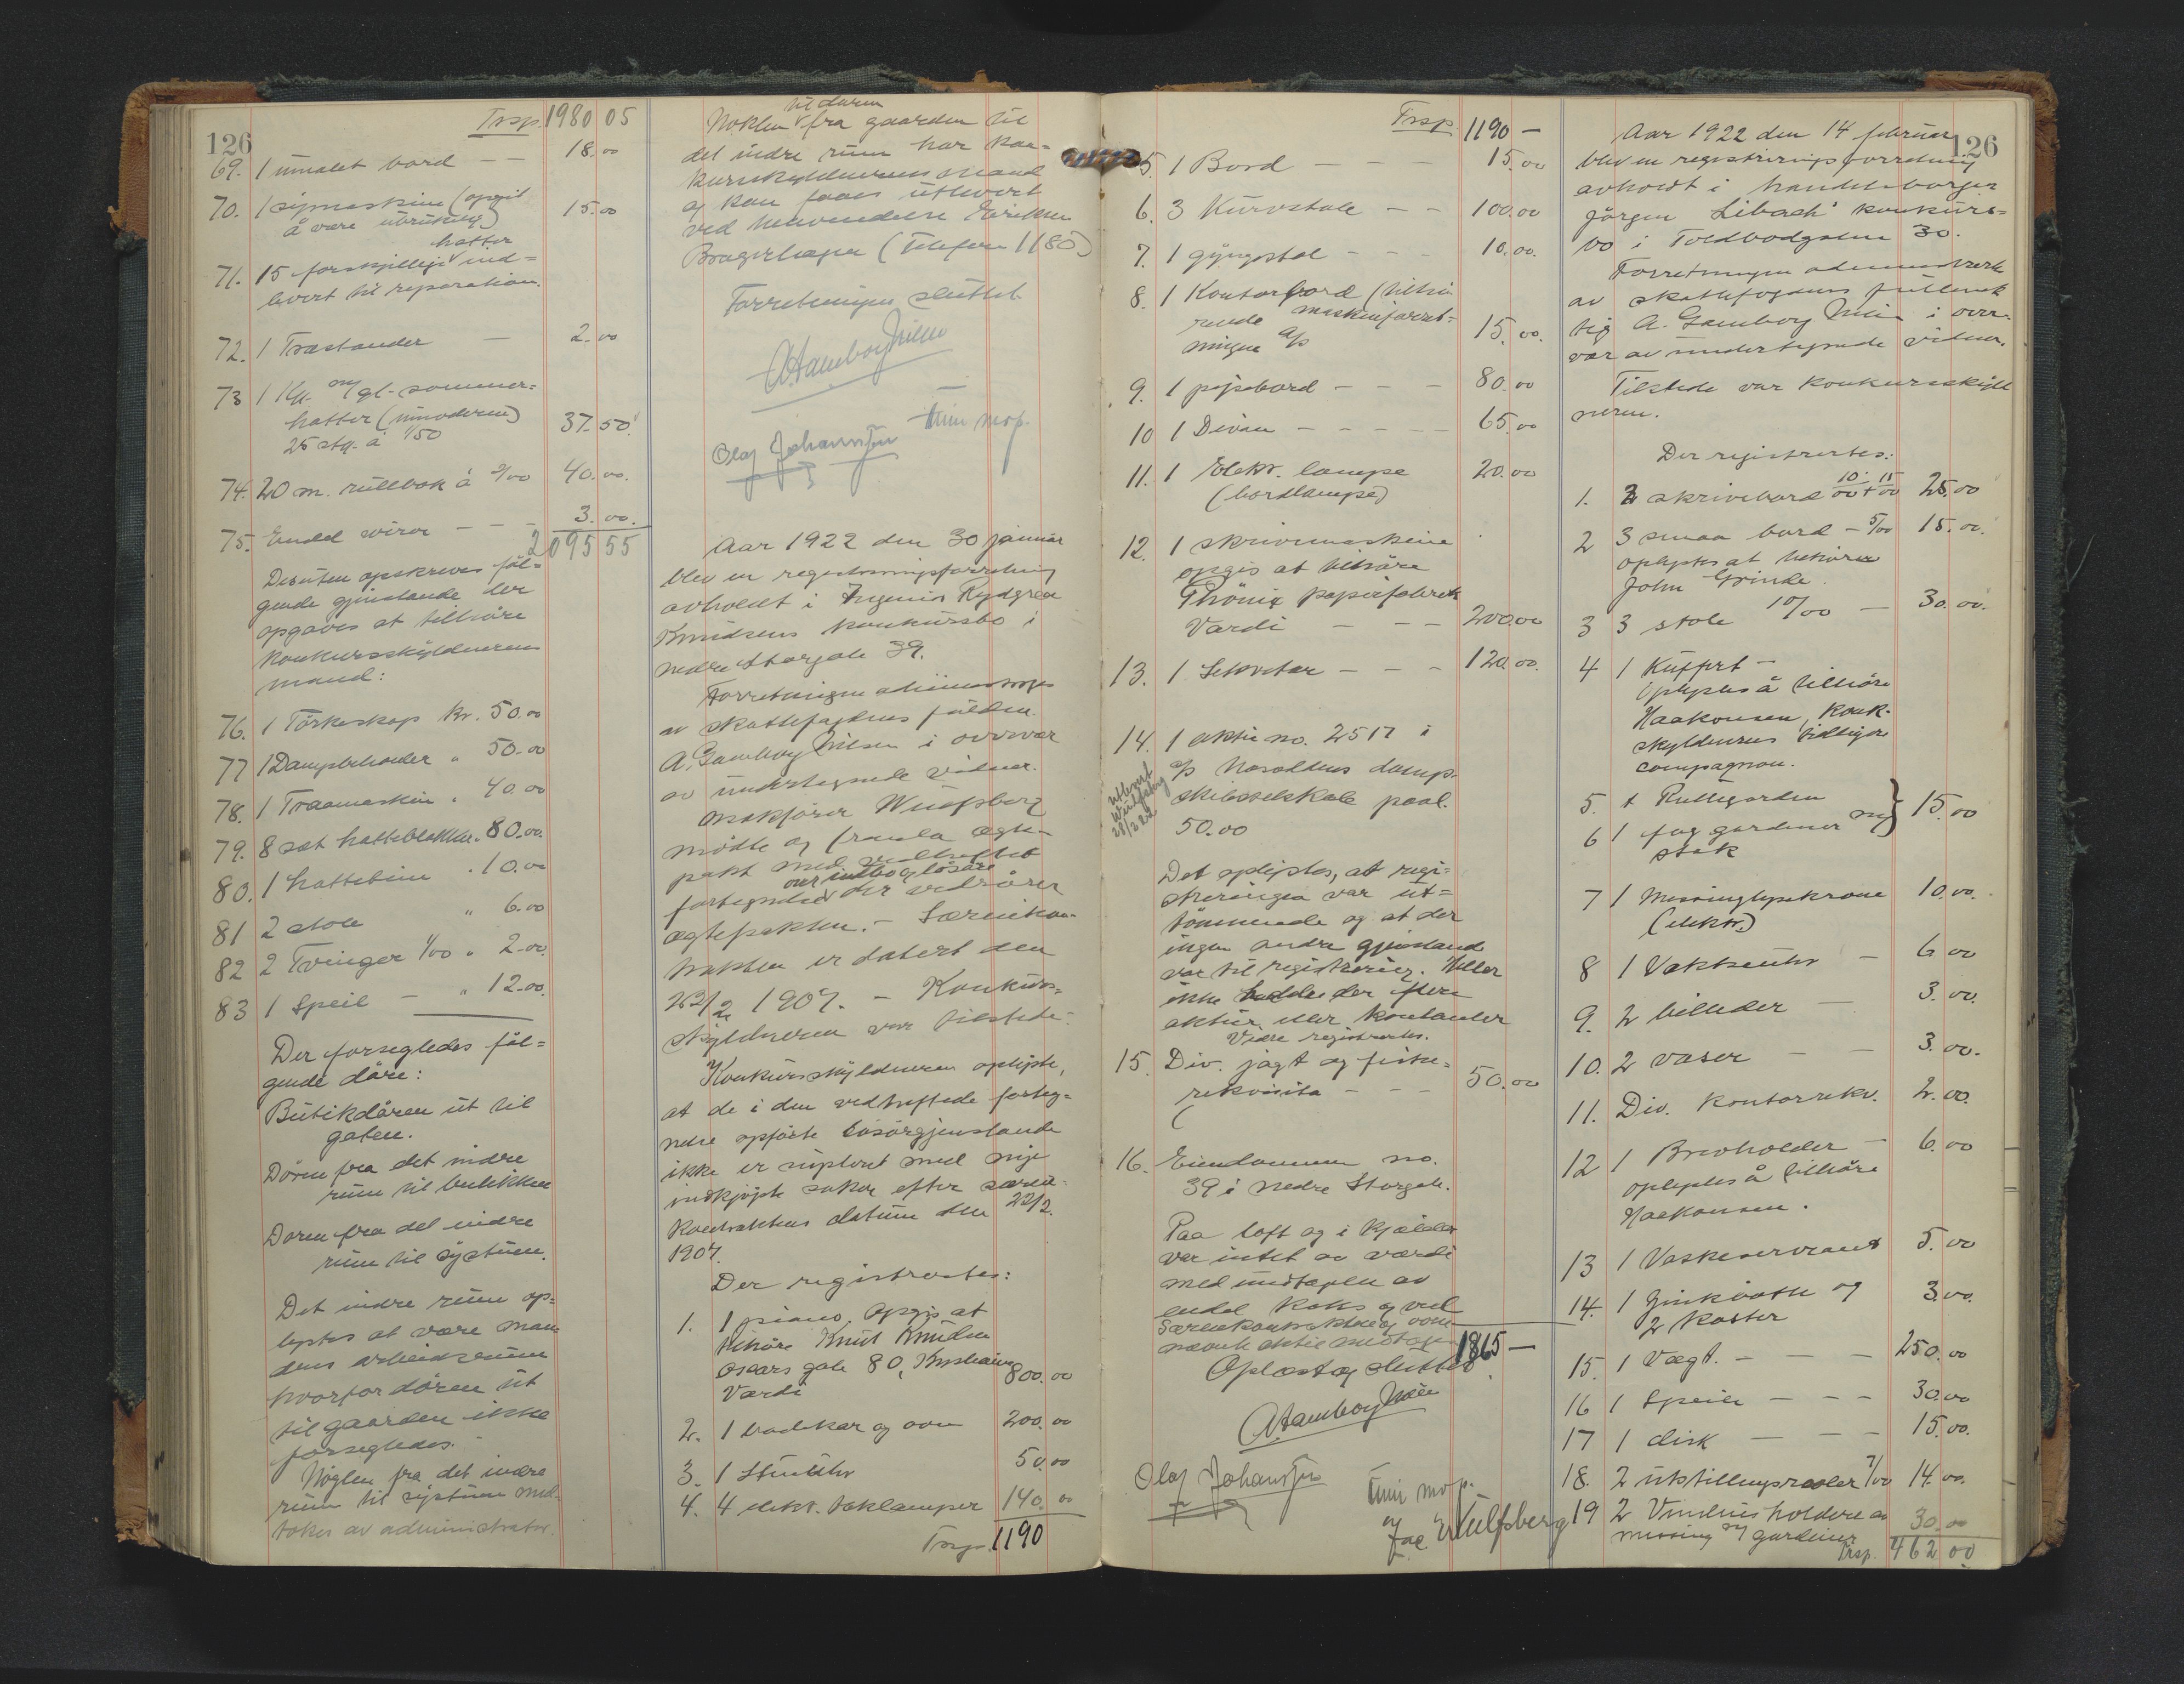 126
Trsp. 1980 05
69. 1 umalet bord — — 18.00
70. 1 symaskin (opgit
å være ubrukelig) 15.00
hatter
71. 15 forskjellige ind=
levert til reparation.
72. 1 Træstander — 2.00
73 1 Kg. gl. sommer=
hatter (umoderne)
25 stk. à 1/50 37.50
74. 20 m. rullbak à 2/00 40.00.
75. Endel varer — — - 3.00.
2095 55
Desuten opskreves föl=
gende gjenstande der
opgaves at tilhöre
konkursskyldnerens
mand:
76. 1 Törkeskap kr. 50.00
77 1 Dampbeholder " 50.00
78. 1 Traamaskin " 40.00
79. 8 sæt hatteblokker " 80.00
80. 1 hattebim " 10.00
81 2 stole " 6.00
82 2 Tvinger 1/00 " 2.00
83 1 Speil — " 12.00.
Der forsegledes föl=
gende döre:
Butikdören ut til
gaten.
Dören fra det indre
rum til butikken
Dören fra det indre
rum til systuen.
Det indre rum op=
lystes at være man
dens arbeidsrum
hvorfor dören ut
til gaarden ikke
forsegledes.
Nöglen fra det indre
rum til systuen med
tokes av administrator.
til dören
Nöklen fra gaarden til
det indre rum har kon=
kursskyldnerens mand
og kan faaes utlevert
ved henvendelse Eriksen
Bragerhagen (Telefon 1180)
Forretningen sluttet.
A Gamborg Nilsen
Olaf Johansen
Aar 1922 den 30 januar
blev en registreringsforretning
avholdt i Ingeniör Rydgren
Knudsens konkursbo i
nedre Storgate 39.
Forretningen
av skattefogdens fuldm.
A. Gamborg Nilsen i overvær
av undertegnede vidner.
Saksfører Wulfsberg
mödte og fremla ægte-
pakt med vedheftet
over indbo og lösöre
fortegnelse der vedrører
ægtepakten. - Særeiekon-
trakten er datert den
22/2 1907. - Konkurs=
skyldneren var tilstede.
Konkursskyldneren oplyste,
at de i den vedheftede forteg=
nelse opförte lösöregjenstande
ikke er supplert med nye
indkjöpte saker efter særeie=
kontraktens datum den 22/2.
1907.
Der registrertes:
1. 1 piano, Opgis at
tilhöre Knut Knudsen
Oscars gate 80, Kristiania
Værdi 800.00
2. 1 badekar og ovn 200.00
3. 1 Stueuhr 50.00
4. 4 elektr. taklamper 140.00
Trsp. 1190
Trsp 1190 —
5. 1 Bord — — — 15.00
6. 3 Kurvstole — — 100.00
7. 1 gyngestol — — — 10.00.
8. 1 Kontorbord (tilhö
rende maskinforret=
ningen A/S 15.00.
9. 1 pipebord — — — 80.00
10 1 Divan — — — — — 65.00
11. 1 Elektr. lampe 20.00
(bordlampe)
12. 1 skrivemaskine
opgis at tilhöre
Phönix papirfabrik
Værdi — — — 200.00
13. 1 Sekretær — — — 120.00.
14. 1 aktie no. 2517 i
A/S Haraldens damp-
skibsselskab paal.
50.00
utlevert
Wulfsberg
28/2 22
Det oplystes, at regi=
streringen var ut=
tömmende og at der
ingen andre gjenstande
var til registrering. Heller
ikke hadde der flere
aktier eller kontanter
Videre registrertes.
15. Div. jagt og fiske=
rekvisita — — — 50.00
16. Eiendommen no.
39 i nedre Storgate.
Paa loft og i kjælder
var intet av værdi
med undtagelse av
endel koks og ved
Særeiekontrakten og oven
nævnte aktie medtages
1865 —
Oplæst og sluttet.
A Gamborg Nilsen
Olaf Johansen
og
Jac. Wulfsberg
126
Aar 1922 den 14 februar
blev en registreringsforretning
avholdt i handelsborger
Jörgen Libach' konkurs=
bo i Toldbodgaten 30.
Forretningen
av skattefogdens fuldmæk
tig A. Gamborg Nilsen i over-
vær av undertegnede vidner.
Tilstede var konkursskyld
neren.
Der registrertes:
1. 2 skrivebord 10/00 + 15/00 25.00
2 3 smaa bord - 5/00 15.00.
oplystes at tilhöre
John Grinde.
3 3 stole 10/00 — 30.00.
4 1 Kuffert —
Oplystes å tilhöre
Haakonsen, konk.
skyldnerens tidligere
compagnon.
5. 1 Rullegardin
6 1 fag gardiner m/ } 15.00
stak
7 1 Messinglysekrone 10.00.
(elektr.)
8 1 Vækkeuhr — 6 00
9. 2 billeder — 3.00.
10. 2 vaser — — 3.00.
11. Div. kontorrekv. 2.00.
12 1 Brevholder — 6.00
oplystes å tilhöre
Haakonsen.
13 1 Vaskeservant 5.00
14. 1 Zinkbötte og 3.00.
2 koster
15. 1 Vægt. — — — 250.00
16 1 Speile — — — 30.00
17 1 disk — — — 15.00.
18. 2 utstillingsreoler 7/00 14.00.
19 2 Vindusholdere av
messing m/ gardiner 30.00
Trsp. 462 00